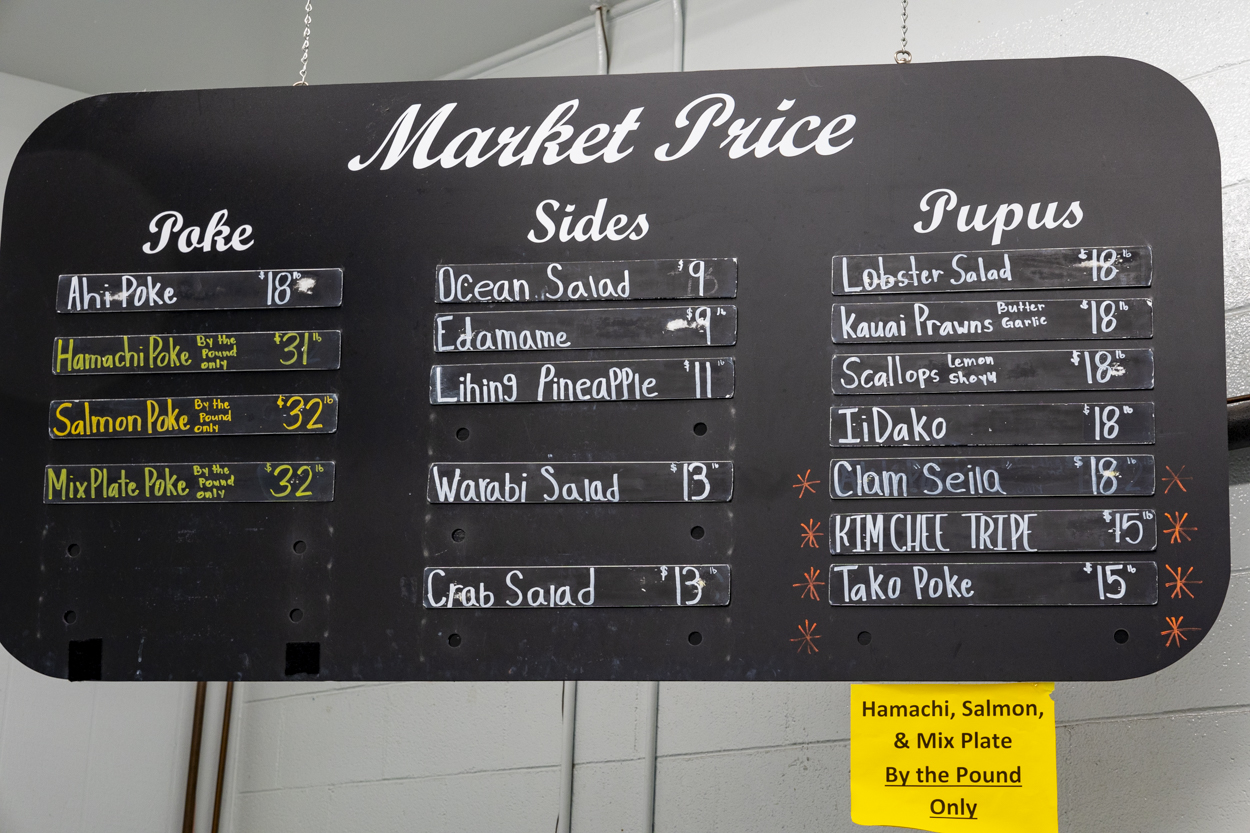 Market Price
Poke
Ahi Poke $18 lb
Hamachi Poke By the Pound only $31 lb
Salmon Poke By the Pound only $32 lb
Mix Plate Poke By the Pound only $32 lb
Sides
Ocean Salad $9 lb
Edamame $9 lb
Lihing PineaPPle $11 lb
Warabi Salad $13 lb
Crab Salad $13 lb
Pupus
Lobster Salad $18 lb
Kauai Prawns Butter Garlic $18 lb
Scallops Lemon Shoyu $18 lb
IiDako $18 lb
Clam "Seila" $18 lb
KIM CHEE TRIPE $15 lb
Tako Poke $15 lb
Hamachi, Salmon,
& Mix Plate
By the Pound
Only